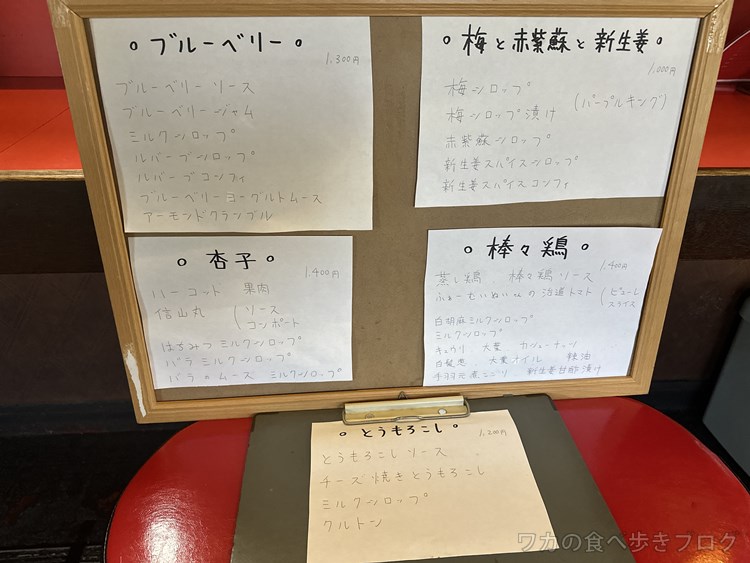 。ブルーベリー。
1,300円
ブルーベリーソース
ブルーベリージャム
ミルクシロップ
ルバーブシロップ
ルバーブコンフィ
ブルーベリーヨーグルトムース
アーモンドクランブル
。梅と赤紫蘇と新生姜。
1,000円
梅シロップ (パープルキング)
梅シロップ漬け
赤紫蘇シロップ
新生姜スパイスシロップ
新生姜スパイスコンフィ
。杏子。
1,400円
ハーコット 果肉
信山丸 (ソース
コンポート
はちみつミルクシロップ
バラミルクシロップ
バラのムース ミルクシロップ
。棒々鶏。
1,400円
蒸し鶏 棒々鶏ソース
ふぁーもいぬいさんの治道トマト (ピューレ
スライス
白胡麻ミルクシロップ
ミルクシロップ
キュウリ 大葉 カシューナッツ
白髪葱 大葉オイル 辣油
手羽元煮こごり 新生姜甘酢漬け
。とうもろこし。
1,200円
とうもろこしソース
チーズ焼きとうもろこし
ミルクシロップ
クルトン
ワカの食べ歩きブログ